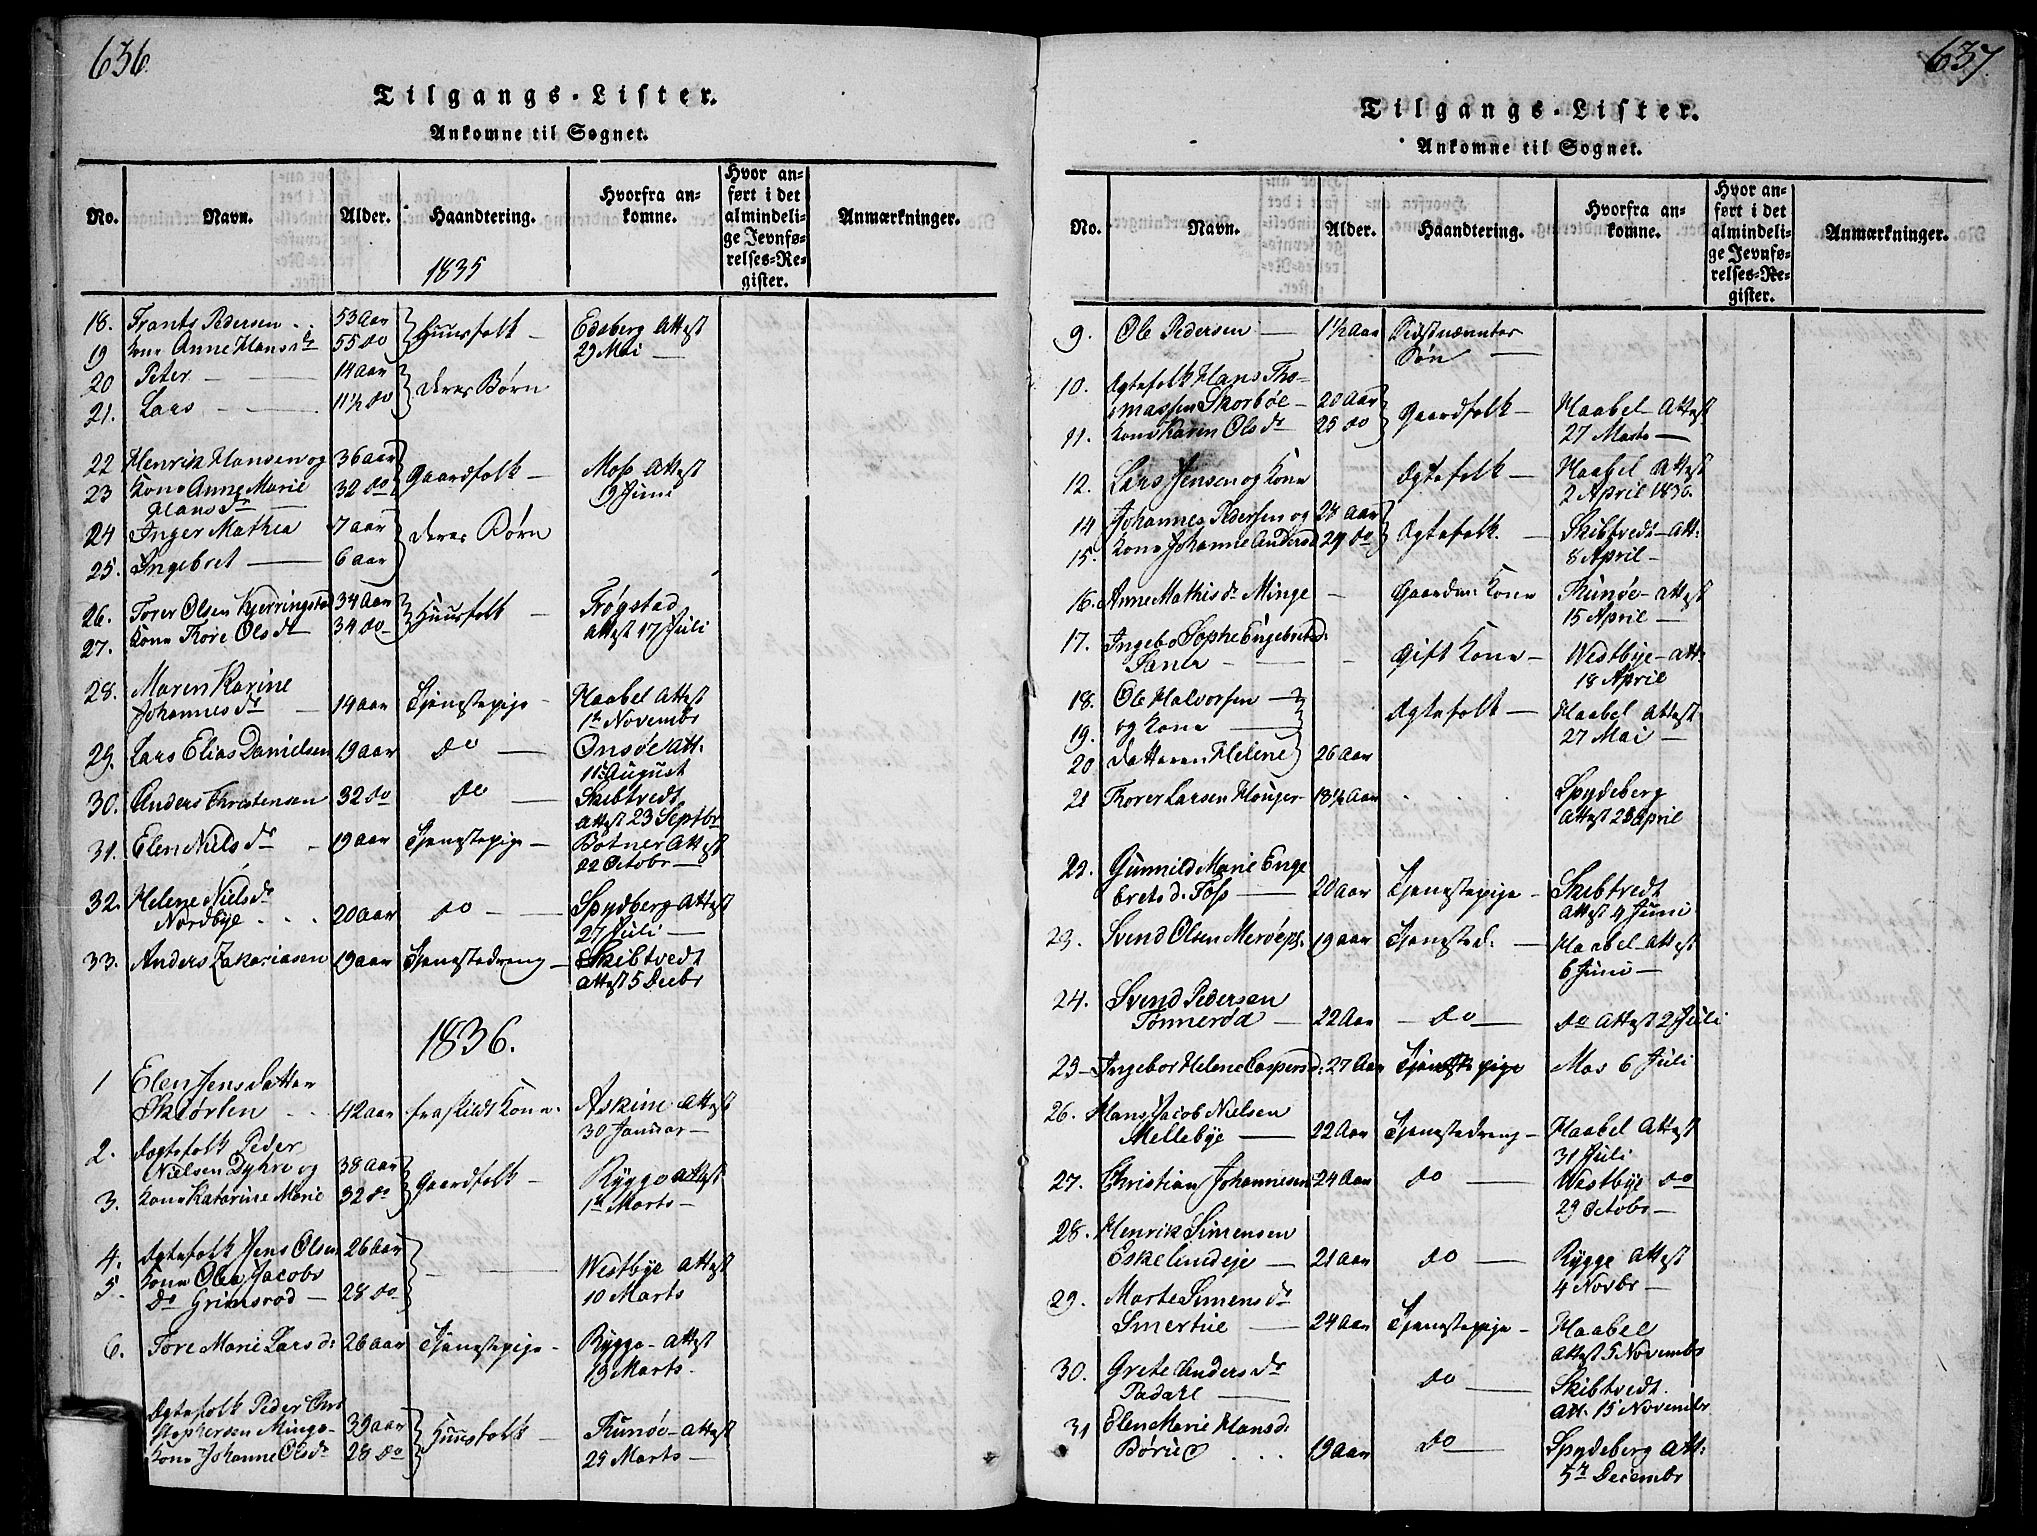 636.
Tilgangs-Lister.
Ankomne til Sognet.
No.
Navn.
Alder.
Haandtering.
Hvorfra an-
komne.
Hvor an-
ført i det
almindeli-
ge Jevnfø-
relses-Re-
gister.
Anmærkninger.
1835
18. Frants Pedersen 53 Aar Huusfolk Edsberg Attest
19 Kone Anne Hans dr 55 do 29 Mai
20 Peter 14 aar deres Børn
21. Lars 11½ do
22 Henrik Hansen og 36 aar Gaardfolk Moss Attest
23 Kone Anne Marie 32 do 19 Juni
Hans dr
24 Inger Mathea 7 aar deres Børn
25. Ingebret 6 aar
26. Torer Olsen Kjerringstad 34 Aar Huusfolk Trøgstad
27. Kone Tore Ols dr 34 do attest 17 Juli
28. Maren Karine
Johannes dr 19 aar Tjenestepige Haabel Attest
1te Novembr
29. Lars Elias Danielsen 19 aar do Onsøe att:
11te August
30. Anders Christensen 32 do do Skibtvedt
attest 23 Septbr
31. Elen Niels dr 19 aar Tjenestepige Botner Attest
22 Octobr
32. Helene Niels dr
Nordbye 20 aar do Spydberg Attest
27 Juli
33. Anders Zakariasen 19 aar Tjenestedreng Skibtvedt
attest 5 Decbr
1836.
1 Elen Jens datter
42 aar fraskildt Kone Askim attest
30 Januar
2. Ægtefolk Peder
Nielsen Dyhre og 38 aar Gaardfolk Rygge attest
3. Kone Katarine Marie 32 do 1te Marts
4. Ægtefolk Jens Olsen 26 aar
5. Kone Olea Jacobs Westbye attest
dr Grimsrød 28 do 10 Marts
6. Tore Marie Lars d: 26 aar Tjenestepige Rygge attest
13 Marts
Ægtefolk Peder Chri
stophersen Minge 39 aar Huusfolk Thunøe attest
Kone Johanne Ols dr 28 do 29 Marts
637.
Tilgangs-Lister.
Ankomne til Sognet.
No.
Navn.
Alder.
Haandtering.
Hvorfra an-
komne.
Hvor an-
ført i det
almindeli-
ge Jevnfø-
relses-Re-
gister.
Anmærkninger.
9. Ole Pedersen 1½ aar Sidstnævntes
Søn
10. Ægtefolk Hans Tho-
massen Skorbøe 20 aar Gaardfolk Haabel Attest
11. Kone Karen Ols dr 25 do 27 Marts
12. Lars Jensen og Kone Ægtefolk Haabel Attest
2 April 1836.
14 Johannes Pedersen og 24 aar Ægtefolk. Skibtvedt Att:
15. Kone Johanne Andersd 29 do 8 April
16. Anne Mathis dr Minge Gaardm: Kone Thunøe attest
15 April
17. Ingebo Sophe Engebretsd:
gift Kone Westbye att:
18 April
18. Ole Halvorsen Ægtefolk Haabel Attest
19. og Kone 27 Mai
20 datteren Helene 26 aar
21 Thorer Larsen 18½ aar Spydeberg
attest 28 April
22. Gunnild Marie Enge
brets d. Foss 20 aar Tjenestepige Skibtvedt
attest 4 Juni
23. Svend Olsen 19 aar Tjenested: Haabel attest
6 Juni
24. Svend Pedersen
Tønnerød 22 Aar do do attest 2 Juli
25 Ingebor Helene Caspersd: 27 Aar Tjenestepige Mos 6 Juli
26. Hans Jacob Nielsen
Mellebye 22 Aar Tjenestedreng Haabel Attest
31 Juli
27. Christian Johannesen 24 aar do Westbye do
29 Octobr
28. Henrik Simensen
Eskelundeje 21 aar do Rygge Attest
4 Novbr
29. Marte Simens dr
Smertue 24 aar Tjenestepige Haabel
attest 5 Novembr
30. Grete Anders dr do Skibtvedt.
att. 15 November
31 Elen Marie Hans d:
19 aar do Spydeberg att:
5te Decembr